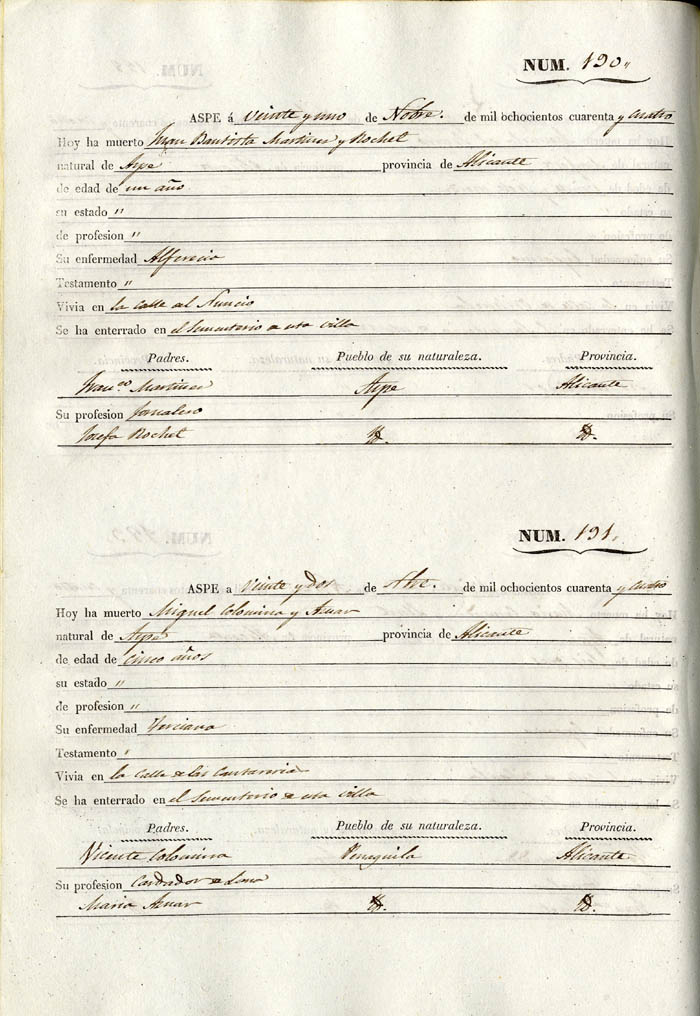 NUM. 190.
ASPE á Veinte y uno de Nobre. de mil ochocientos cuarenta y cuatro
Hoy ha muerto Juan Bautista Martinez y Rochel
natural de Aspe provincia de Alicante
de edad de un año
su estado "
de profesion "
Su enfermedad Alferecia
Testamento "
Vivia en la calle del Nuncio
Se ha enterrado en el Sementerio de esta villa
Padres. Pueblo de su naturaleza. Provincia.
Franco Martinez Aspe Alicante
Su profesion Jornalero
Josefa Rochel Yd. Yd.
NUM. 191.
ASPE a Veinte y dos de Nbre. de mil ochocientos cuarenta y cuatro
Hoy ha muerto Miguel Colomina y Aznar
natural de Aspe provincia de Alicante
de edad de cinco años
su estado "
de profesion "
Su enfermedad Terciana
Testamento "
Vivia en la calle de las
Se ha enterrado en el Sementerio de esta villa
Padres. Pueblo de su naturaleza. Provincia.
Vicente Colomina Penaguila Alicante
Su profesion Cardador de Lana
Maria Aznar Yd. Yd.